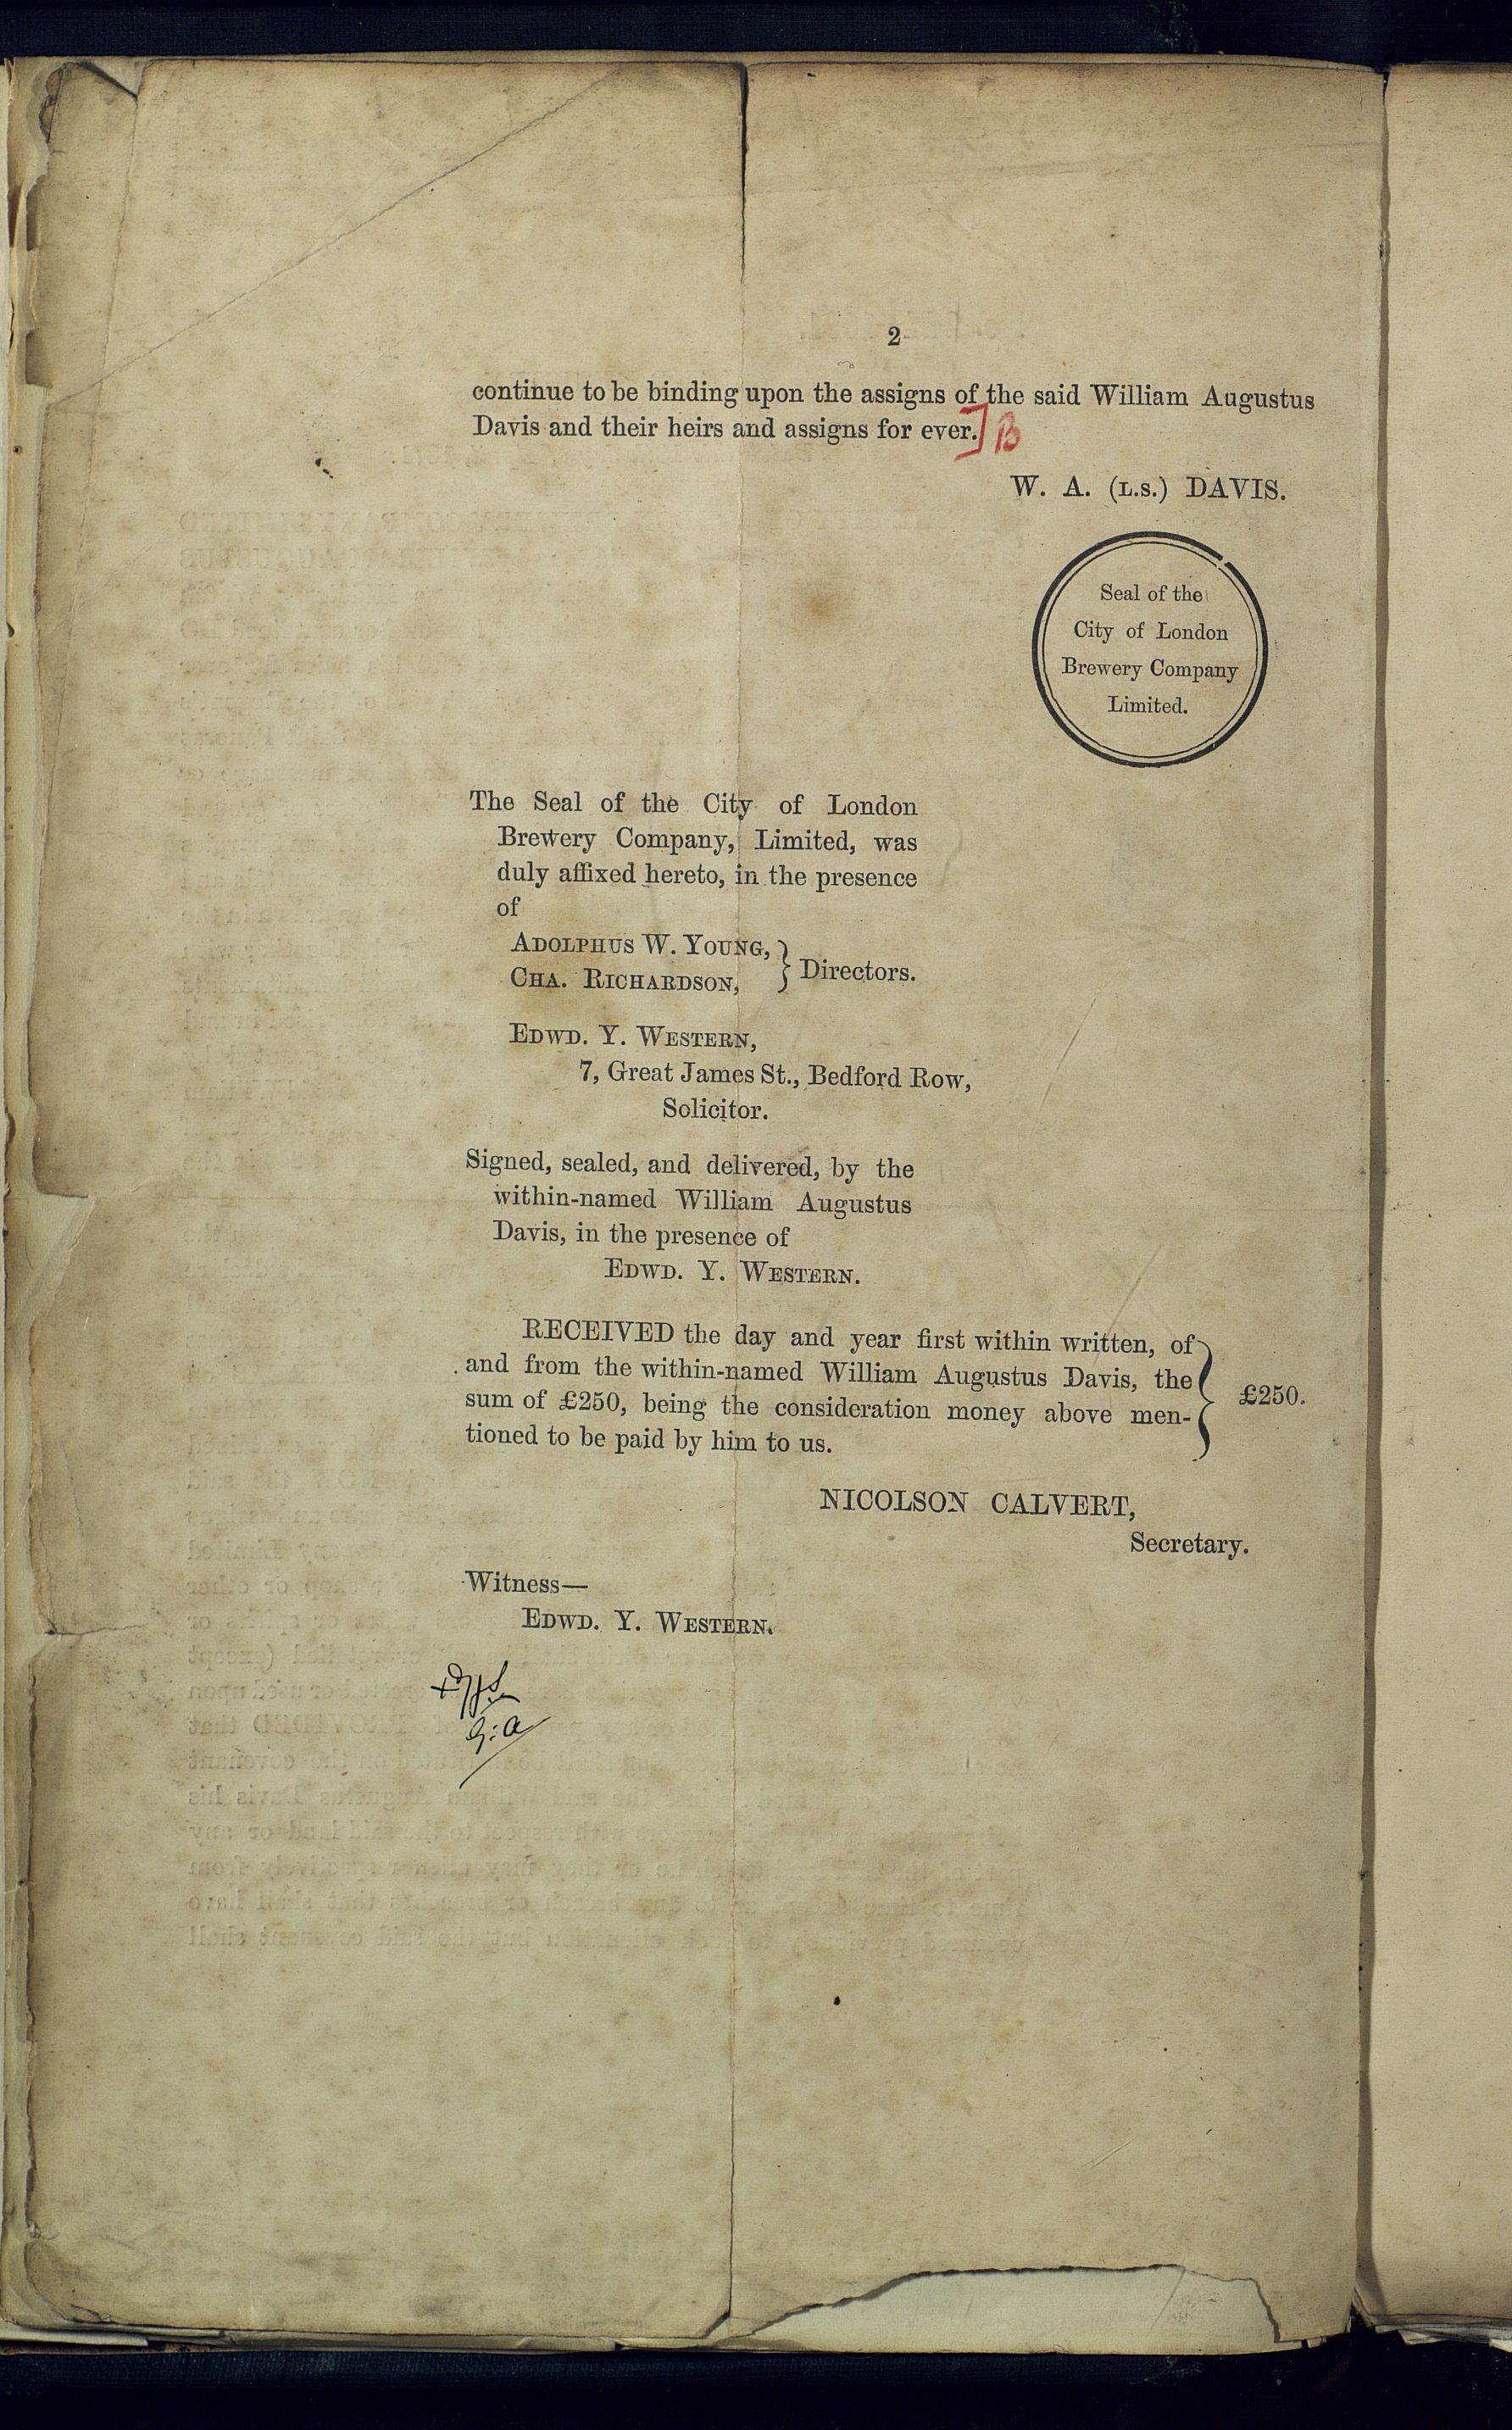 2
continue to be binding upon the assigns of the said William Augustus
Davis and their heirs and assigns for ever.] B
W. A. (L.S.) DAVIS.
Seal of the
City of London
Brewery Company
Limited.
The Seal of the City of London
Brewery Company, Limited, was
duly affixed hereto, in the presence
of
ADOLPHUS W. YOUNG,
CHA. RICHARDSON, } Directors.
EDWD. Y. WESTERN,
7, Great James St., Bedford Row,
Solicitor.
Signed, sealed, and delivered, by the
within-named William Augustus
Davis, in the presence of
EDWD. Y. WESTERN.
RECEIVED the day and year first within written, of
and from the within-named William Augustus Davis, the
sum of £250, being the consideration money above men-
tioned to be paid by him to us. } £250.
NICOLSON CALVERT,
Secretary.
Witness—
EDWD. Y. WESTERN.
G: a